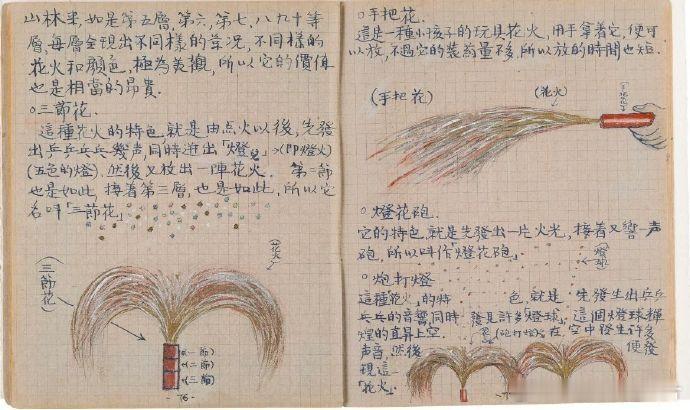 山林来，如是第五層，第六，第七，八九十等
層，每層全現出不同樣的景况，不同樣的
花火和顏色，極為美觀，所以它的價值
也是相當的昂貴。
○三節花。
這種花火的特色就是由点火以後，先發
出乒乒乓乓幾声，同時迸出「燈兒」(即燈火)
(五色的燈)．然後又放出一陣花火。第二節
也是如此，接着第三層，也是如此，所以它
名叫「三節花」
(三節花)
(花火)
(一節)
(二節)
(三節)
-76-
○手把花。
這是一種小孩子的玩具花火，用手拿着它，便可
以放，不過它的装葯量不多，所以放的時間也短．
(手把花)
(花火)
○燈花砲．
它的特色，就是先發出一片火光，接着又響一声
砲，所以叫作「燈花砲」
(燈球)
○炮打燈
這種花火的特色，就是先發生出乒乒
乓乓的音響，同時發是許多燈球，這個燈球輝
煌的直昇上空．(砲打燈)在空中發生許多
声音，然後便發
現這一
「花火」．